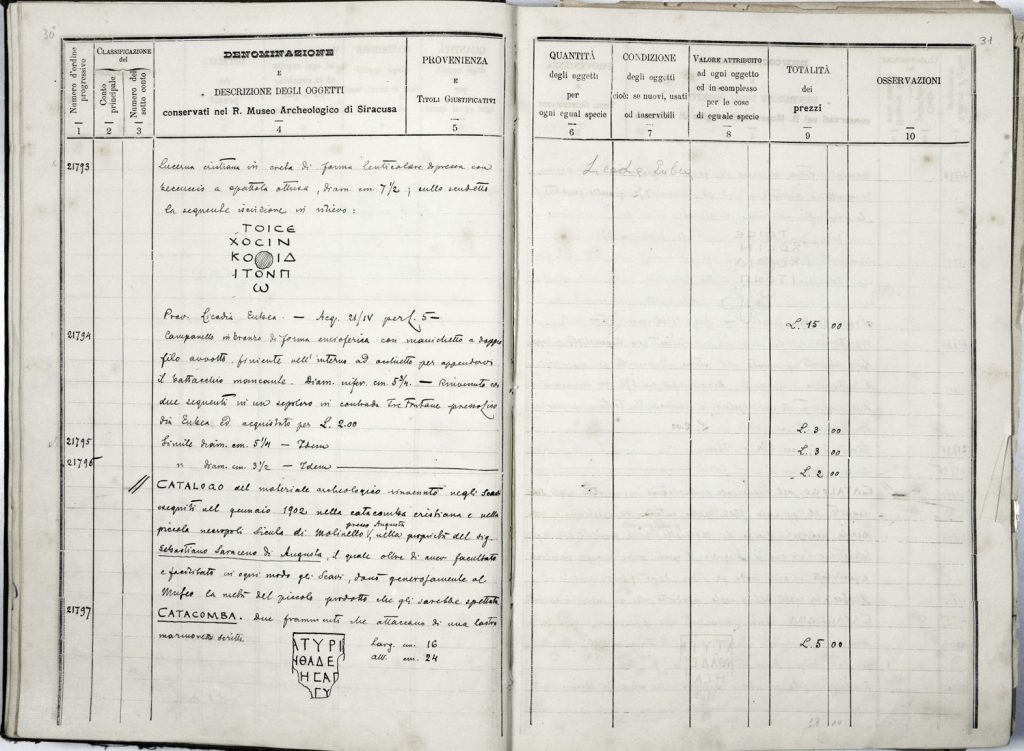 30
Numero d'ordine progressivo
1
CLASSIFICAZIONE
del
Conto principale
2
Numero del sotto conto
3
DENOMINAZIONE
E
DESCRIZIONE DEGLI OGGETTI
conservati nel R. Museo Archeologico di Siracusa
4
PROVENIENZA
E
TITOLI GIUSTIFICATIVI
5
21793
Lucerna cristiana in creta di forma lenticolare depressa con
beccuccio a spattola ottusa, diam. cm 7 1/2; sullo scudetto
la seguente iscrizione in rilievo:
ΤΟΙCΕ
ΧΟCΙΝ
ΚΟ ΙΔ
ΙΤΟΝΠ
Ѡ
Prov. Licodia Eubea. — Acq. 21/IV per L. 5—
21794
Campanello in bronzo di forma emisferica con manichetto a doppio
filo avvolto, finiente nell'interno ad occhietto per appendervi
il battacchio mancante. Diam. infer. cm. 5 3/4. — Rinvenuto coi
due seguenti in un sepolcro in contrada Tre Fontane presso Lico
dia Eubea, ed acquistato per L. 2.00
21795
Simile diam. cm. 5 1/4 — Idem
21796
" diam. cm. 3 1/2 — Idem
// CATALOGO del materiale archeologico rinvenuto negli Scavi
eseguiti nel gennaio 1902 nella catacomba cristiana e nella
presso Augusta
piccola necropoli Sicula di Molinello, nella proprietà del sig.
Sebastiano Saraceno di Augusta, il quale oltre di aver facultato
e facilitato in ogni modo gli Scavi, donò generosamente al
Museo la metà del piccolo prodotto che gli sarebbe spettata
21797
CATACOMBA. Due frammenti che attaccano di una lastra
marmorea scritta
ΑΤΥΡΙ
ΗΘΑΔΕ
ΗCΑΓ
ΓΥ
Larg. cm. 16
alt. cm. 24
31
QUANTITÀ
degli oggetti
per
ogni egual specie
6
CONDIZIONE
degli oggetti
cioè: se nuovi, usati
od inservibili
7
VALORE ATTRIBUITO
ad ogni oggetto
ed in complesso
per le cose
di eguale specie
8
TOTALITÀ
dei
prezzi
9
OSSERVAZIONI
10
Licodia Eubea
L. 15 00
L. 3 00
L. 3 00
L. 2 00
L. 5 00